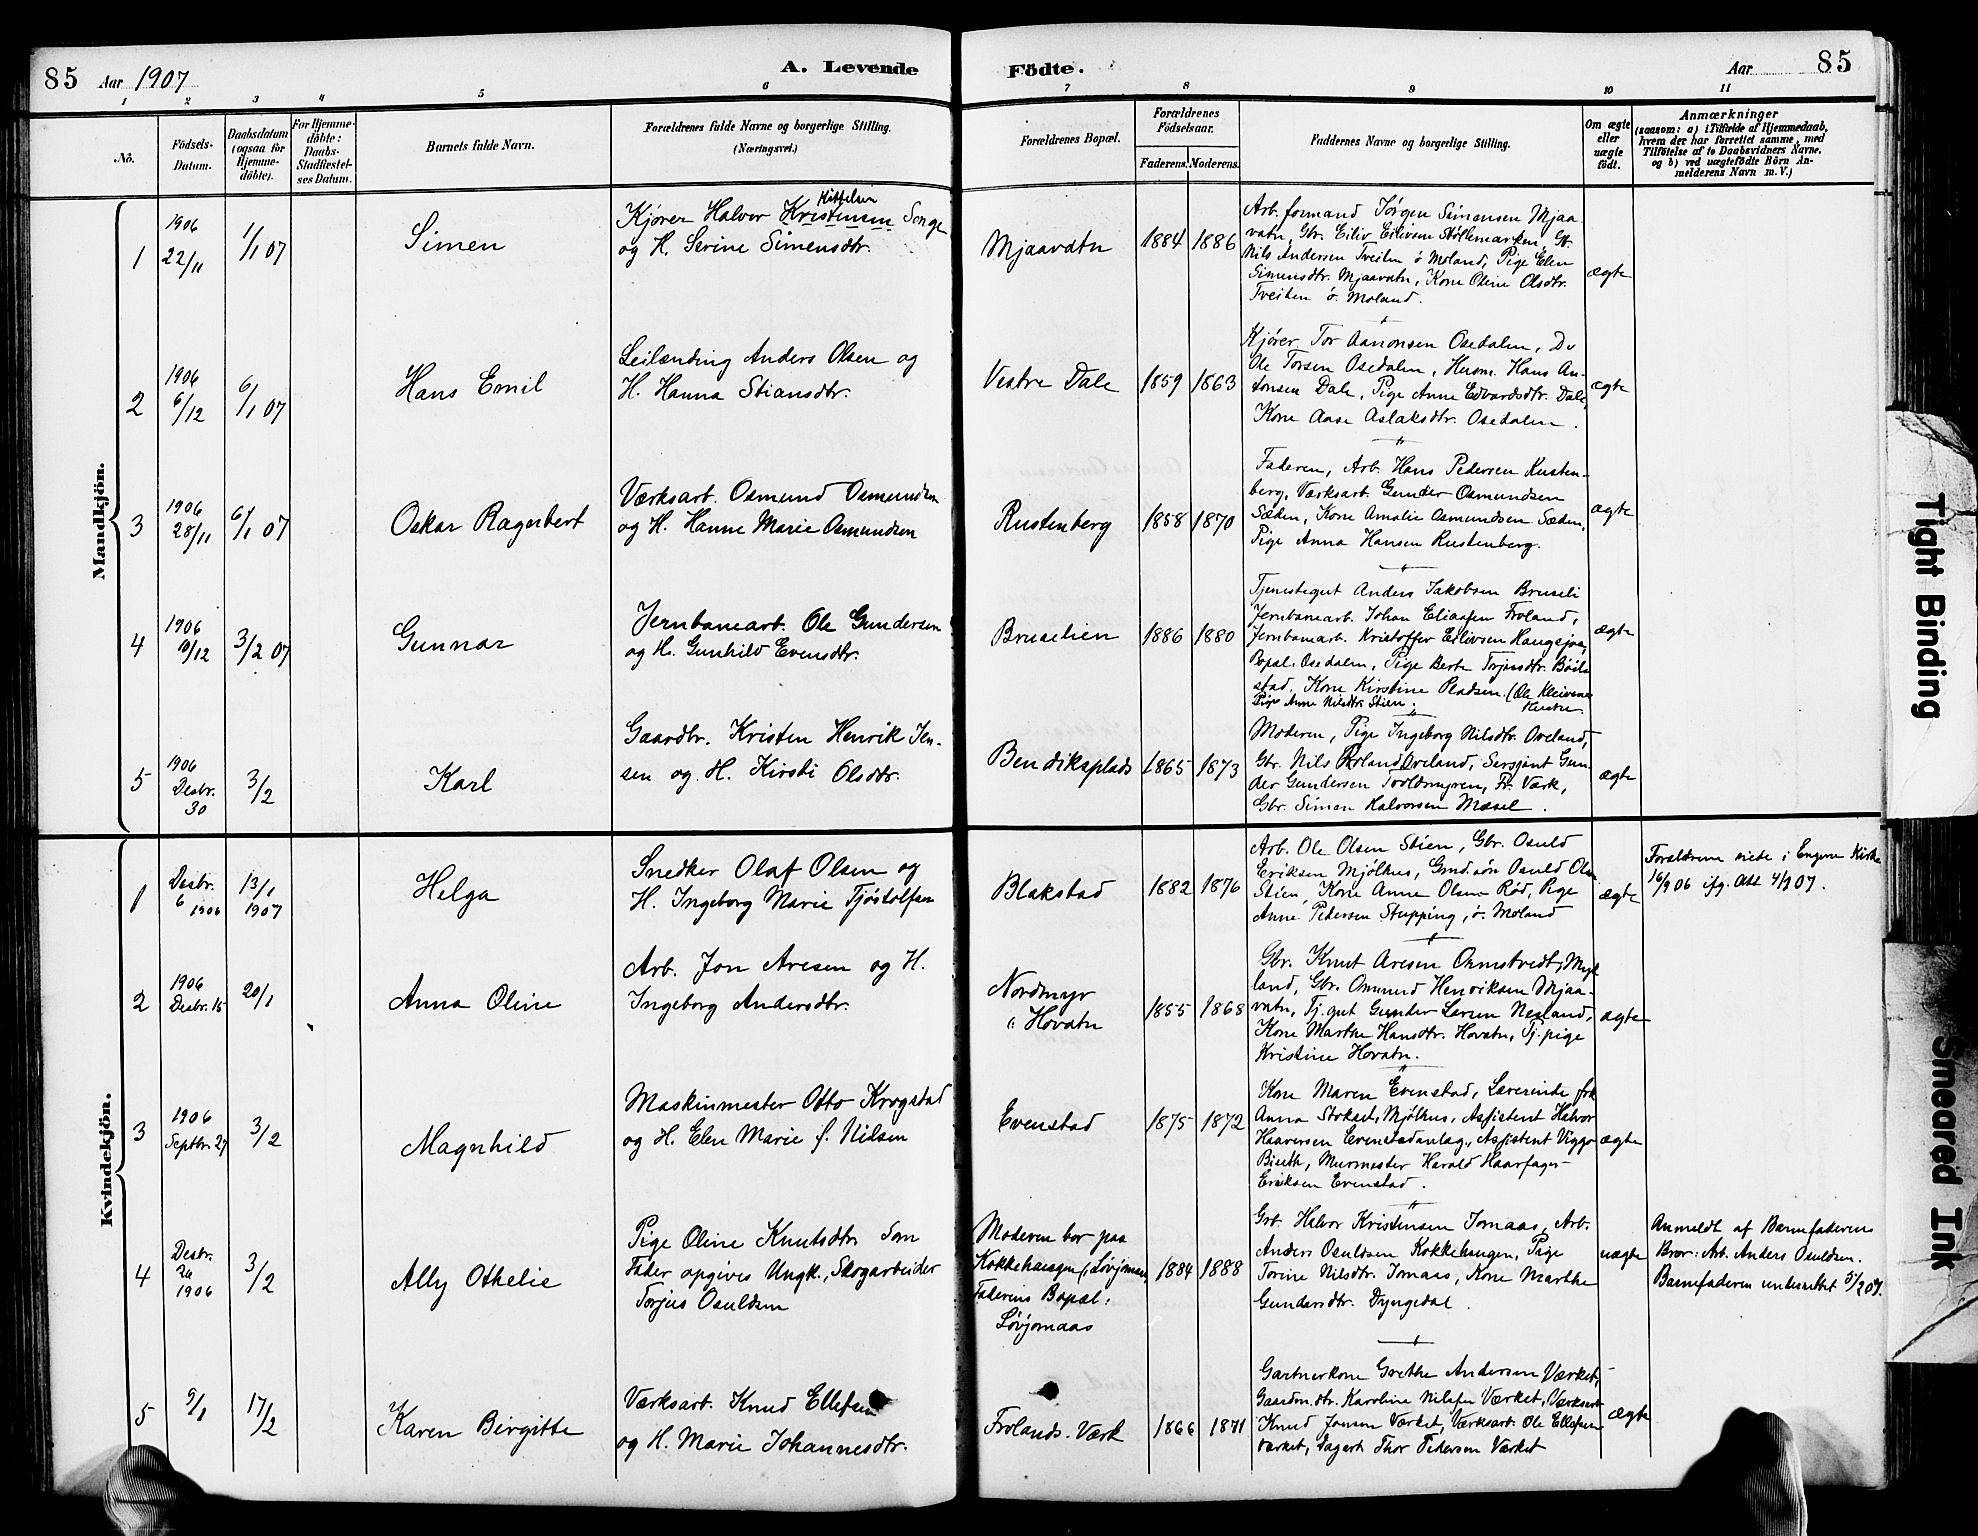 85 Aar 1907
A. Levende
Födte.
Aar
85
1 2 3 4 5 6 7 8 9 10 11
No.
Födsels-
Datum.
Daabsdatum
(ogsaa for
Hjemme-
döbte).
For Hjemme-
döbte:
Daabs-
Stadfæstel-
ses Datum.
Barnets fulde Navn.
Forældrenes fulde Navne og borgerlige Stilling.
(Næringsvei.)
Forældrenes Bopæl.
Forældrenes
Födselsaar.
Faderens. Moderens.
Faddernes Navne og borgerlige Stilling.
Om ægte
eller
uægte
födt.
Anmærkninger
(saasom: a) i Tilfælde af Hjemmedaab,
hvem der har forrettet samme, med
Tilföielse af to Daabsvidners Navne,
og b) ved uægtefödte Börn An-
melderens Navn m. V.)
Mandkjön.
1
1906
22/11
1/1 07
Simen
Kittelsen
Kjører Halvor Kristensen Songe
og H. Serine Simensdtr.
Mjaavatn
1884 1886
Arb. formand Jørgen Simensen Mjaa-
vatn, Gbr. Eiliv Eilivsen Støllemarken, Gt.
Nils Andersen Tveiten ø Moland, Pige Elen
Simensdtr. Mjaavatn, Kone Oline Olsdtr.
Tveiten ø. Moland.
ægte
2
1906
6/12
6/1 07
Hans Emil
Leilænding Anders Olsen og
H. Hanna Stiansdtr.
Vestre Dale
1859 1863
Kjører Tor Aanonsen Osedalen, Do
Ole Torsen Osedalen, Husm. Hans An-
tonsen Dale, Pige Anne Edvardsdtr. Dale,
Kone Aase Aslaksdtr. Osedalen.
ægte
3
1906
28/11
6/1 07
Oskar Ragnbert
Værksarb. Osmund Osmundsen
og H. Hanne Marie Osmundsen
Rustenberg
1858 1870
Faderen, Arb. Hans Pedersen Rusten-
berg, Værksarb. Gunder Osmundsen
Sæden, Kone Amalie Osmundsen Sæden,
Pige Anna Hansen Rustenberg.
ægte
4
1906
10/12
3/2 07
Gunnar
Jernbanearb. Ole Gundersen
og H. Gunhild Evensdtr.
Bruselien
1886 1880
Tjenestegut Anders Jakobsen Bruseli
Jernbanearb. Johan Eliassen Froland,
Jernbanearb. Kristoffer Eilivsen Haugsjaa,
Bopæl: Osedalen, Pige Berte Torjusdtr. Bøil-
stad, Kone Kirstine Pladsen. (Ole Kleivenes
Pige Anne Nilsdtr. Stien.
ægte
5
1906
Desbr.
30
3/2
Karl
Gaardbr. Kristen Henrik Jen-
sen og H. Kirsti Olsdtr.
Bendiksplads
1865 1873
Moderen, Pige Ingeborg Nilsdtr. Oveland,
Gbr. Nils Roland Oveland, Sersjant Gun-
der Gundersen Toldmyren, Fr. Værk,
Gbr. Simen Halvorsen Mæsel.
ægte
Kvindekjön.
1
Desbr.
6 1906
13/1
1907
Helga
Snedker Olaf Olsen og
H. Ingeborg Marie Tjøstolfsen
Blakstad
1882 1876
Arb. Ole Olsen Stien, Gbr. Osuld
Eriksen Mjølhus, Grd.søn Osuld Olsen
Stien, Kone Anne Olsen Rød, Pige
Anne Pedersen Stupping, ø. Moland
ægte
Forældrene viede i Engene Kirke
16/9 06 ifg. Att 4/9 07.
2
1906
Desbr. 15
20/1
Anna Oline
Arb. Jon Aresen og H.
Ingeborg Andersdtr.
Nordmyr
i Hovatn
1855 1868
Gbr. Knut Aresen Ormstvedt, Myk-
land, Gbr. Omund Henriksen Mjaa-
vatn, Tj. gut Gunder Larsen Nesland,
Kone Marthe Hansdtr. Hovatn, Tj. pige
Kristine Hovatn.
ægte
3
1906
Septbr. 27
3/2
Magnhild
Maskinmester Otto Krogstad
og H. Elen Marie f. Nilsen
Evenstad
1875 1872
Kone Maren Evenstad, Lærerinde frk
Anna Stokset, Mjølhus, Assistent Halvor
Haaversen Evenstadanlæg, Assistent Viggo
Bieth, Murmester Harald Haarfager-
Eriksen Evenstad.
ægte
4
Desbr.
1906
3/2
Ally Othelie
Pige Oline Knutsdtr. Som
Fader opgives Ungk., Skogarbeider
Torjus Osuldsen
Moderen bor paa
Kokkehaugen (Løvjomaas
Faderens Bopæl:
Løvjomaas
1884 1888
Grb. Halvor Kristensen Jomaas, Arb.
Anders Osuldsen Kokkehaugen, Pige
Torine Nilsdtr. Jomaas, Kone Marthe
Gundersdtr. Dyngedal.
uægte
Anmeldt af Barnefaderens
Bror: Arb. Anders Osuldsen.
Barnefaderen underrettet 5/2 07.
5
9/1
17/2
Karen Birgitte
Værksarb. Knud Ellefsen
og H. Marie Johannesdtr.
Frolands Værk
1866 1871
Gartnerkone Grethe Andersen Værket,
Gaardm.dtr. Karoline Nilsen Værket, Værksarb
Knud Jonsen Værket, Værksarb. Ole Ellefsen
Værket, Sagarb. Thor Pedersen Værket
ægte
Tight Binding
Smeared Ink